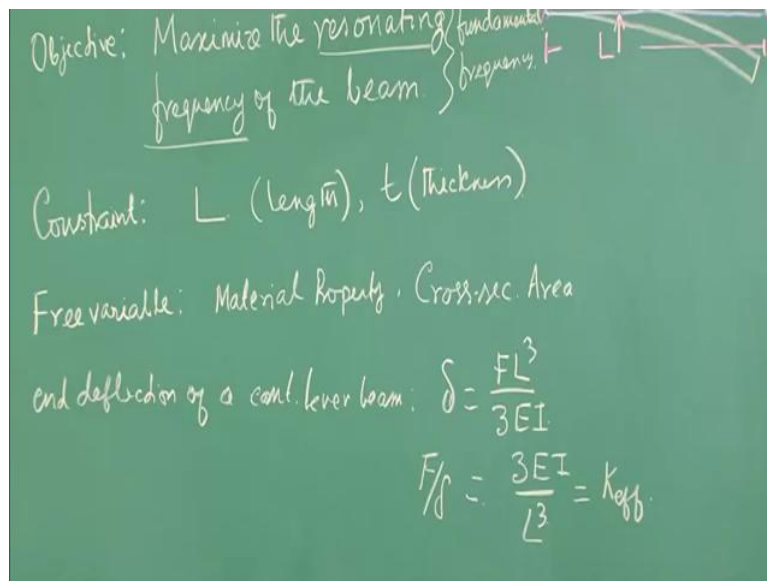 Objective: Maximize the resonating } fundamental
frequency of the beam. } frequency.
L
Constraint: L (length), t (thickness)
Free variable: Material Property, Cross-sec. Area
end deflection of a cant. lever beam: δ = FL³/3EI
F/δ = 3EI/L³ = Keff.